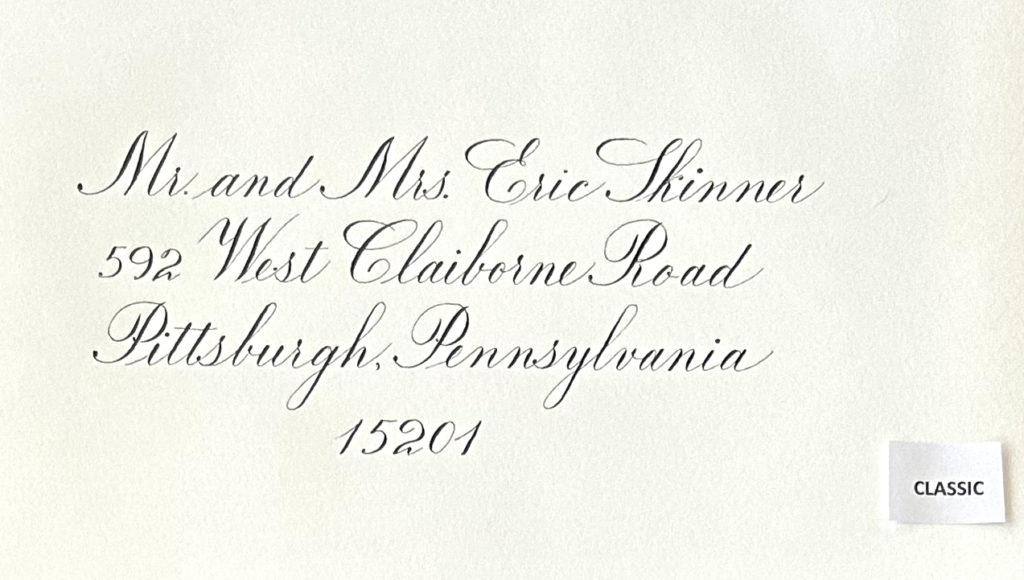 Mr. and Mrs. Eric Skinner
592 West Claiborne Road
Pittsburgh, Pennsylvania
15201
CLASSIC